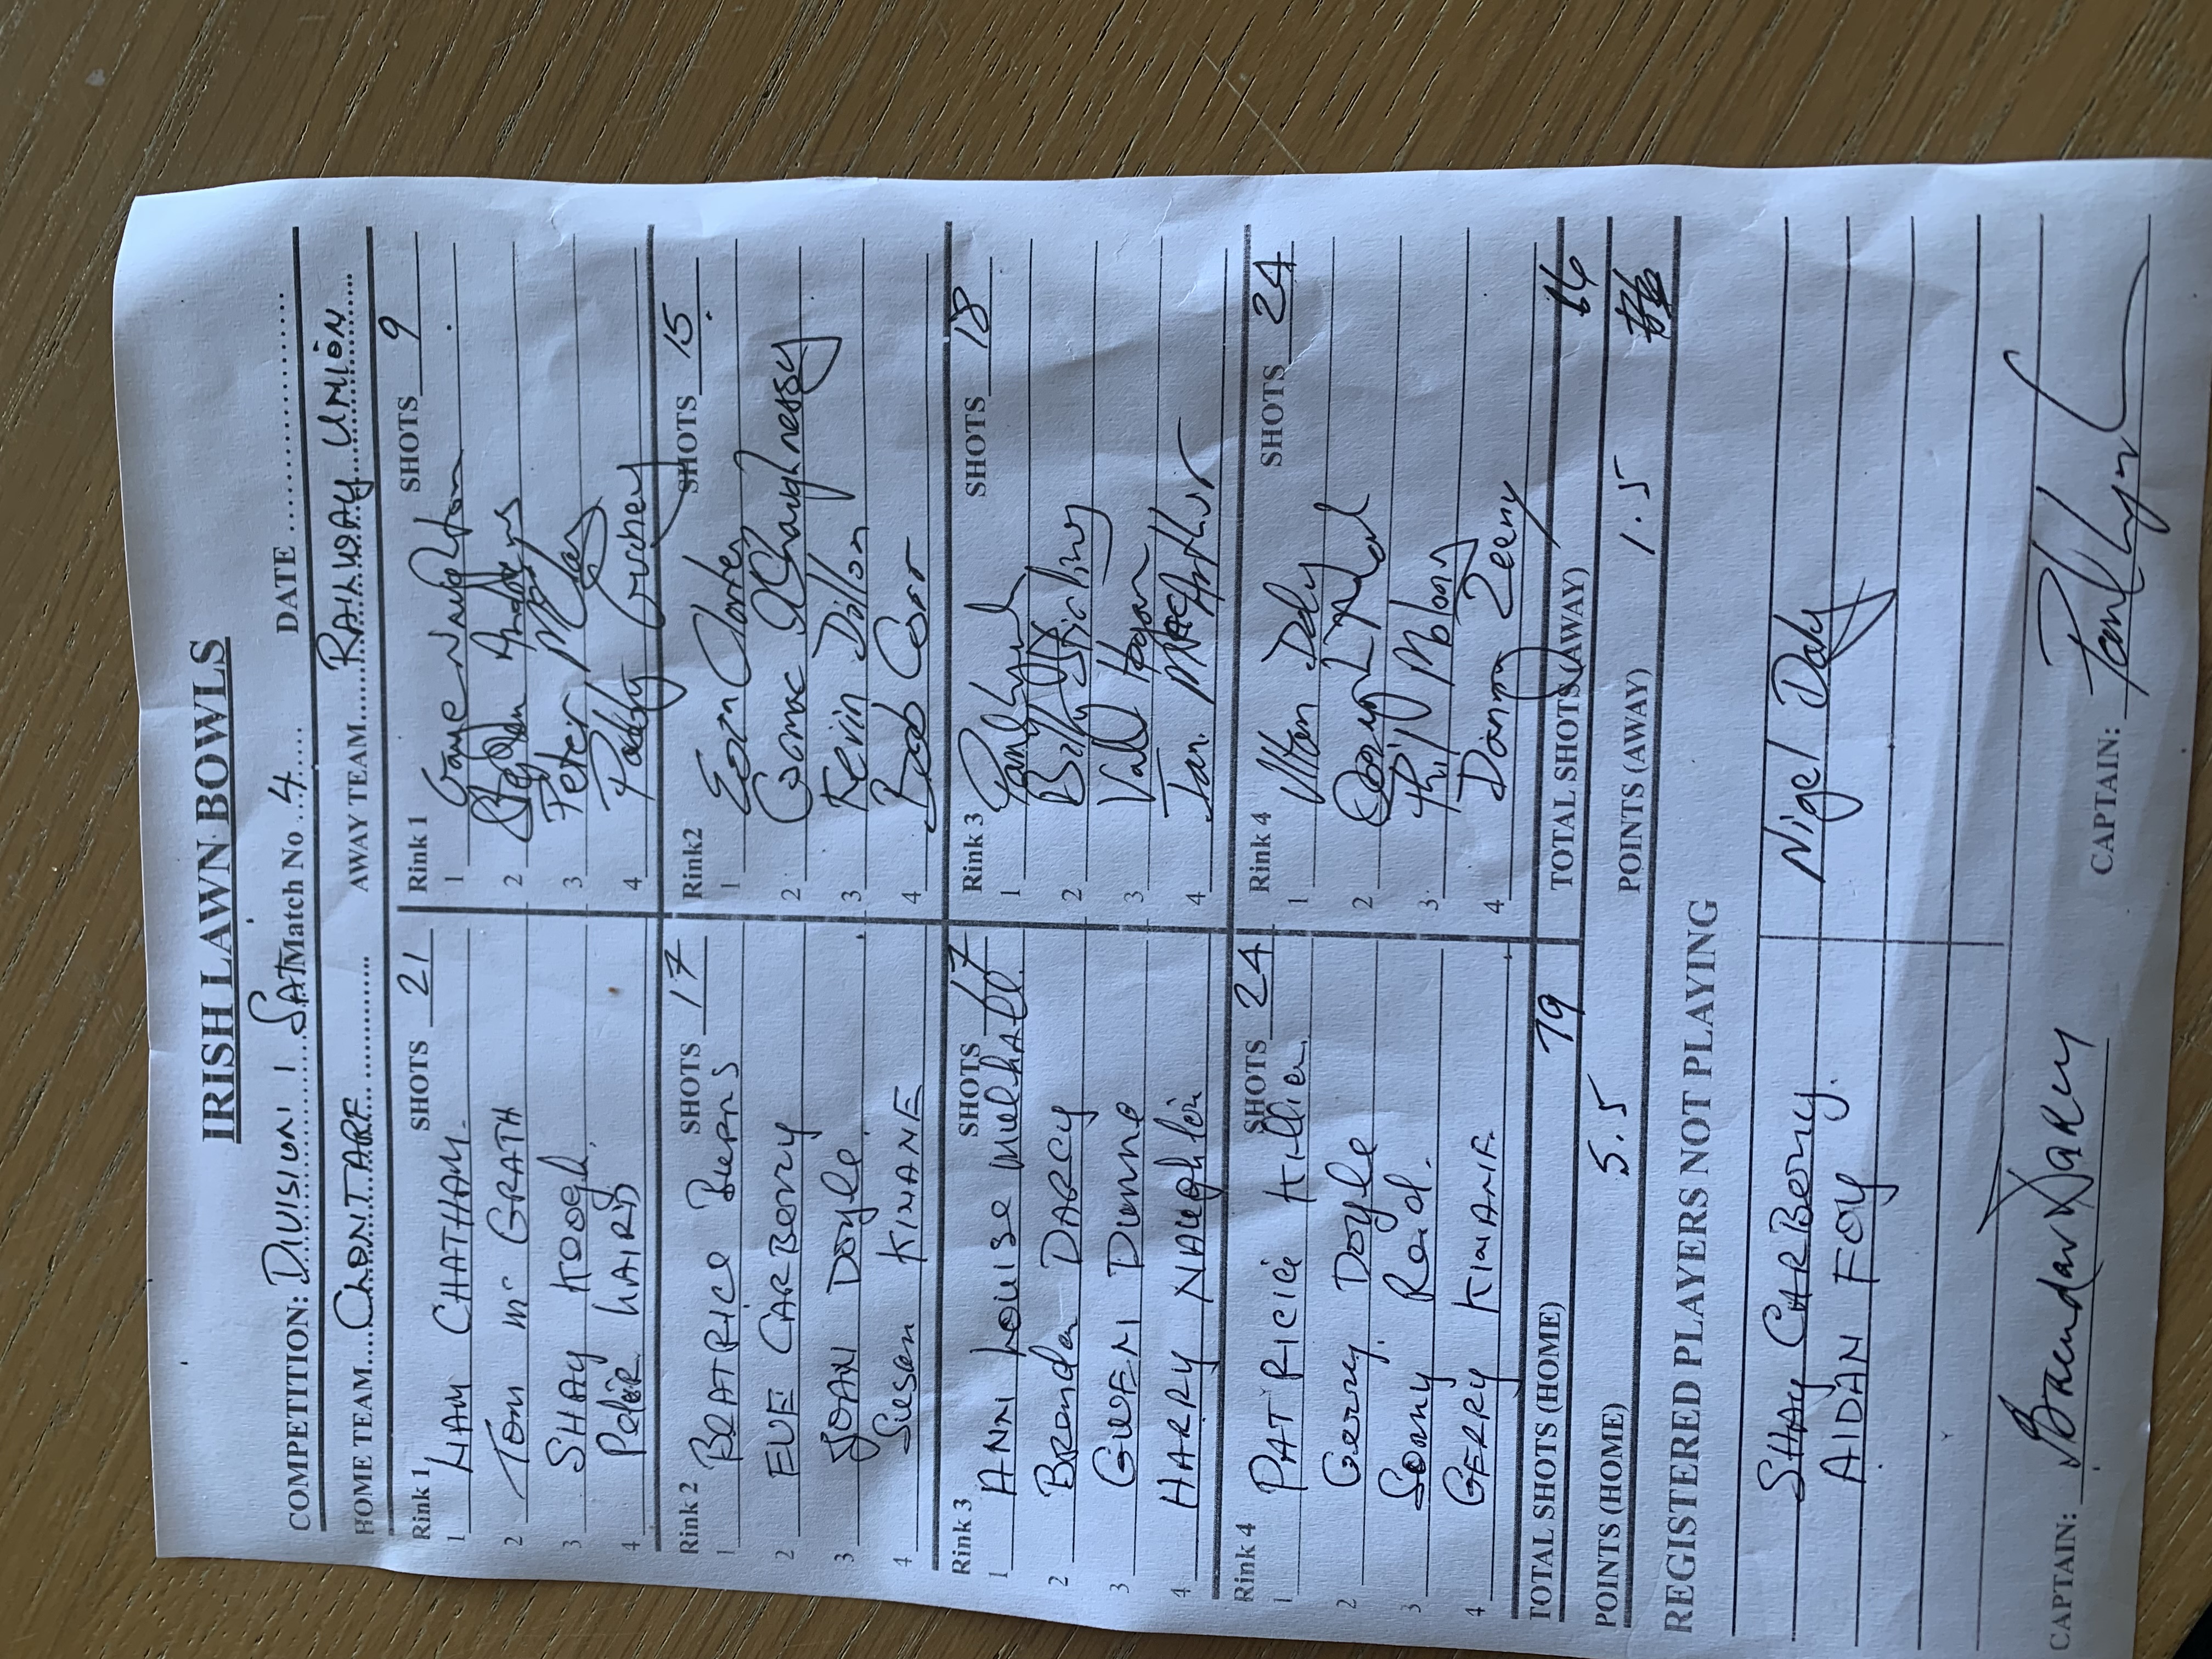 IRISH LAWN BOWLS
COMPETITION: DIVISION 1 SAT Match No ...4.... DATE ....................
HOME TEAM.... CLONTARF ............... AWAY TEAM..... RAILWAY UNION ....
Rink 1 SHOTS 21 Rink 1 SHOTS 9
1 LIAM CHATHAM. 1 Gaye Naughton
2 Tom Mc GRATH 2
3 SHAY Keogh. 3 Peter
4 Peter LAIRD 4 Paddy Courtney
Rink 2 SHOTS 17 Rink2 SHOTS 15
1 BEATRICE Burns 1
2 EVE CARBERRY 2 Cormac O'Shaughnessy
3 JOAN Doyle. 3 Kevin Dillon
4 Susan KINANE 4 Bob Corr
Rink 3 SHOTS 17 Rink 3 SHOTS 18
1 ANN Louise Mulhall. 1 Paul Lynch
2 Brendan DARCY 2 Billy Stirling
3 GWEN Dunne 3 Hogan
4 HARRY NAUGHTON 4 Ian MacArthur
Rink 4 SHOTS 24 Rink 4 SHOTS 24
1 PATRICIA Killian 1 Ultan Daly
2 Gerry. Doyle 2
3 Sonny Reid. 3 Phil
4 GERRY KINANE. 4
TOTAL SHOTS (HOME) 79 TOTAL SHOTS (AWAY) 66
POINTS (HOME) 5.5 POINTS (AWAY) 1.5
REGISTERED PLAYERS NOT PLAYING
SHAY CARBERRY. Nigel Daly
AIDAN FOY
CAPTAIN: Brendan Darcy CAPTAIN: Paul Lynch